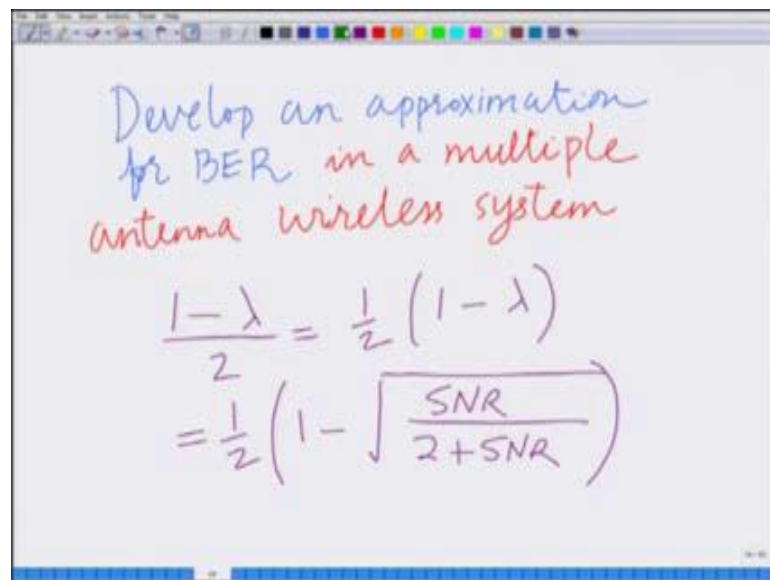 Develop an approximation
for BER in a multiple
antenna wireless system
(1 - λ)/2 = 1/2 (1 - λ)
= 1/2 (1 - √(SNR/(2 + SNR)))